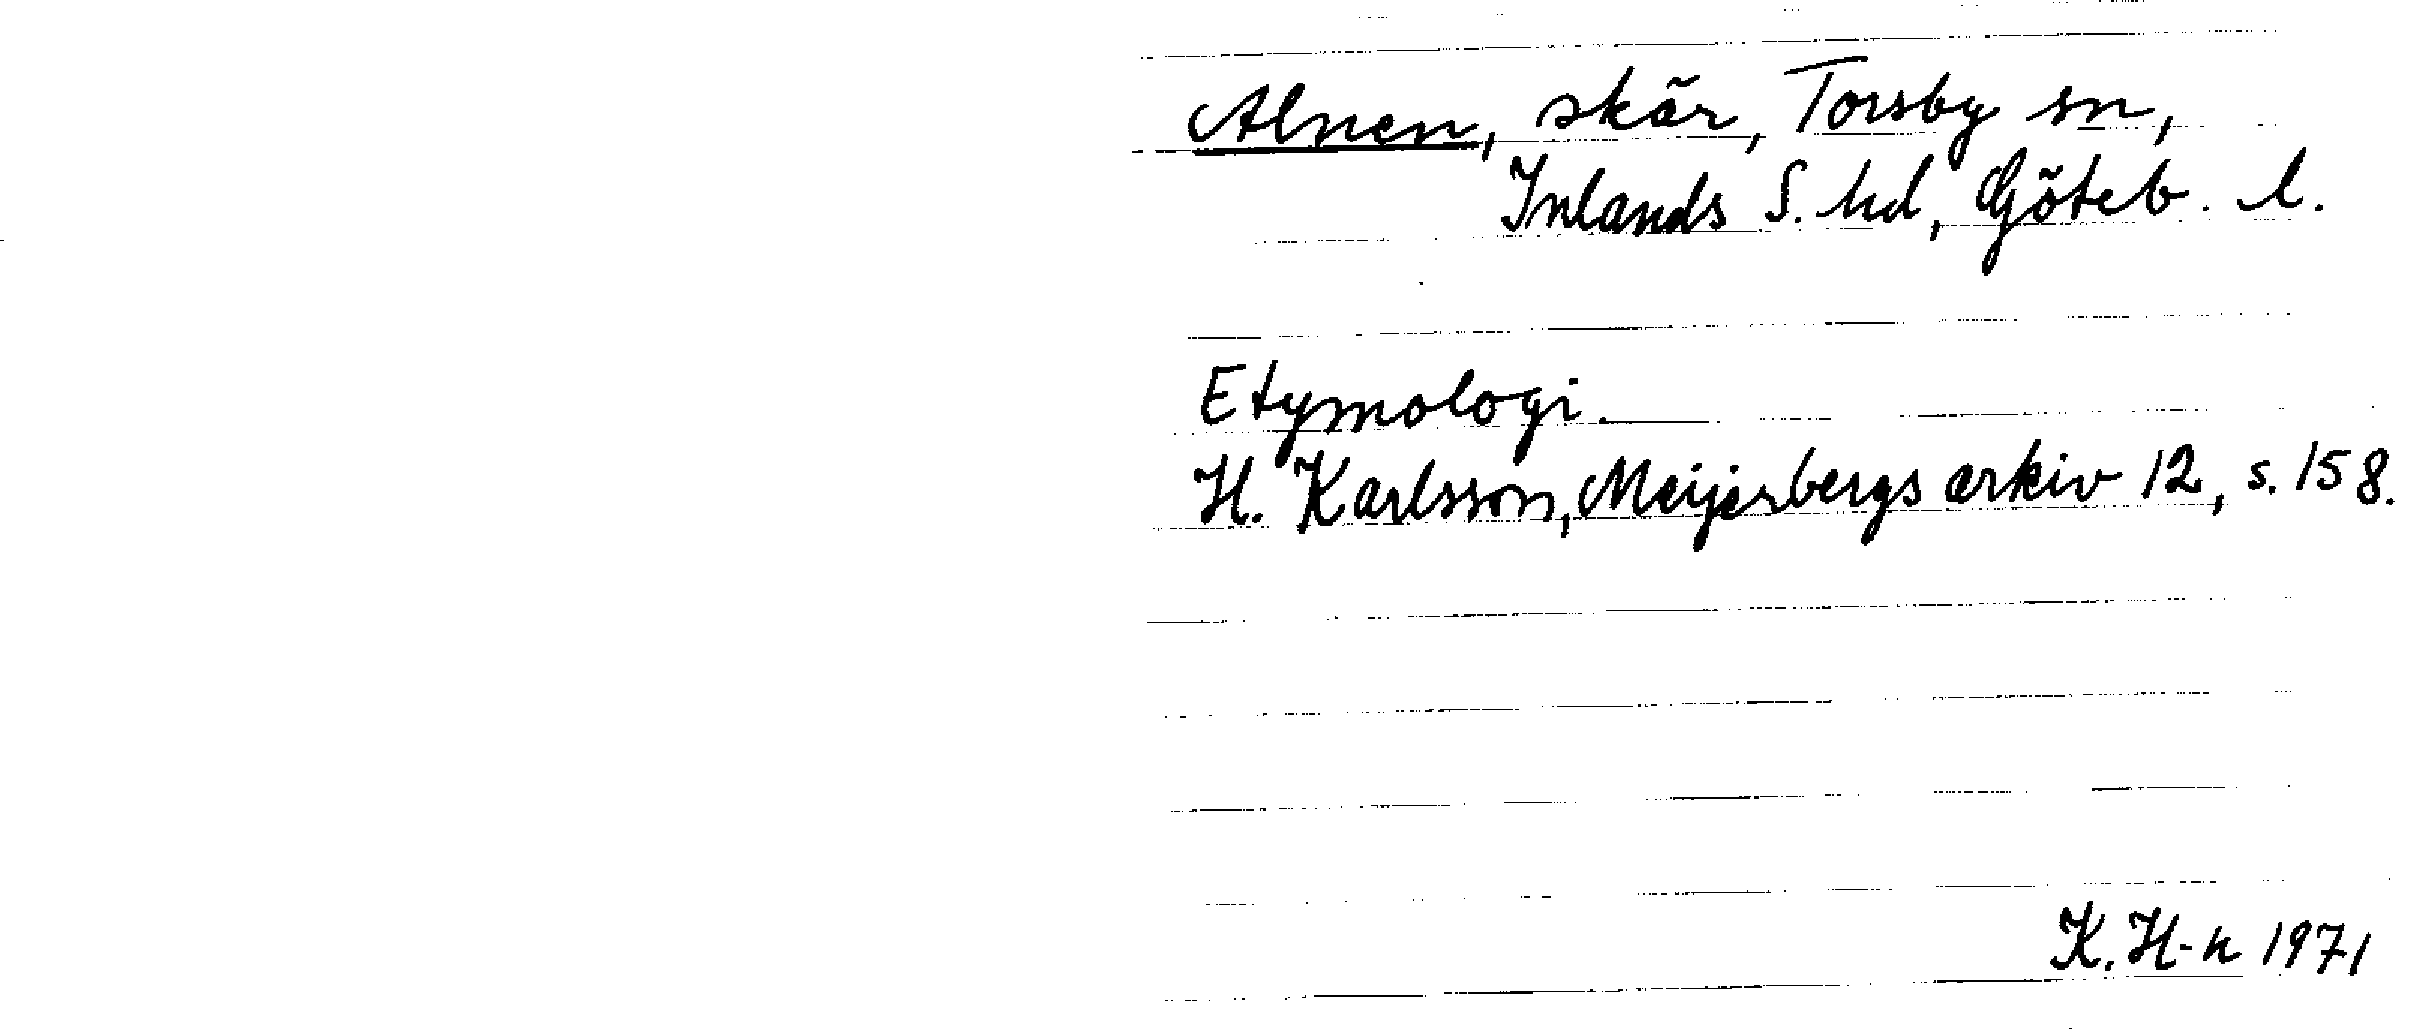 Alnen, skär, Torsby sn,
Inlands S. hd, Göteb. l.
Etymologi.
H. Karlsson, Meijerbergs arkiv 12, s. 158.
K. H-n 1971